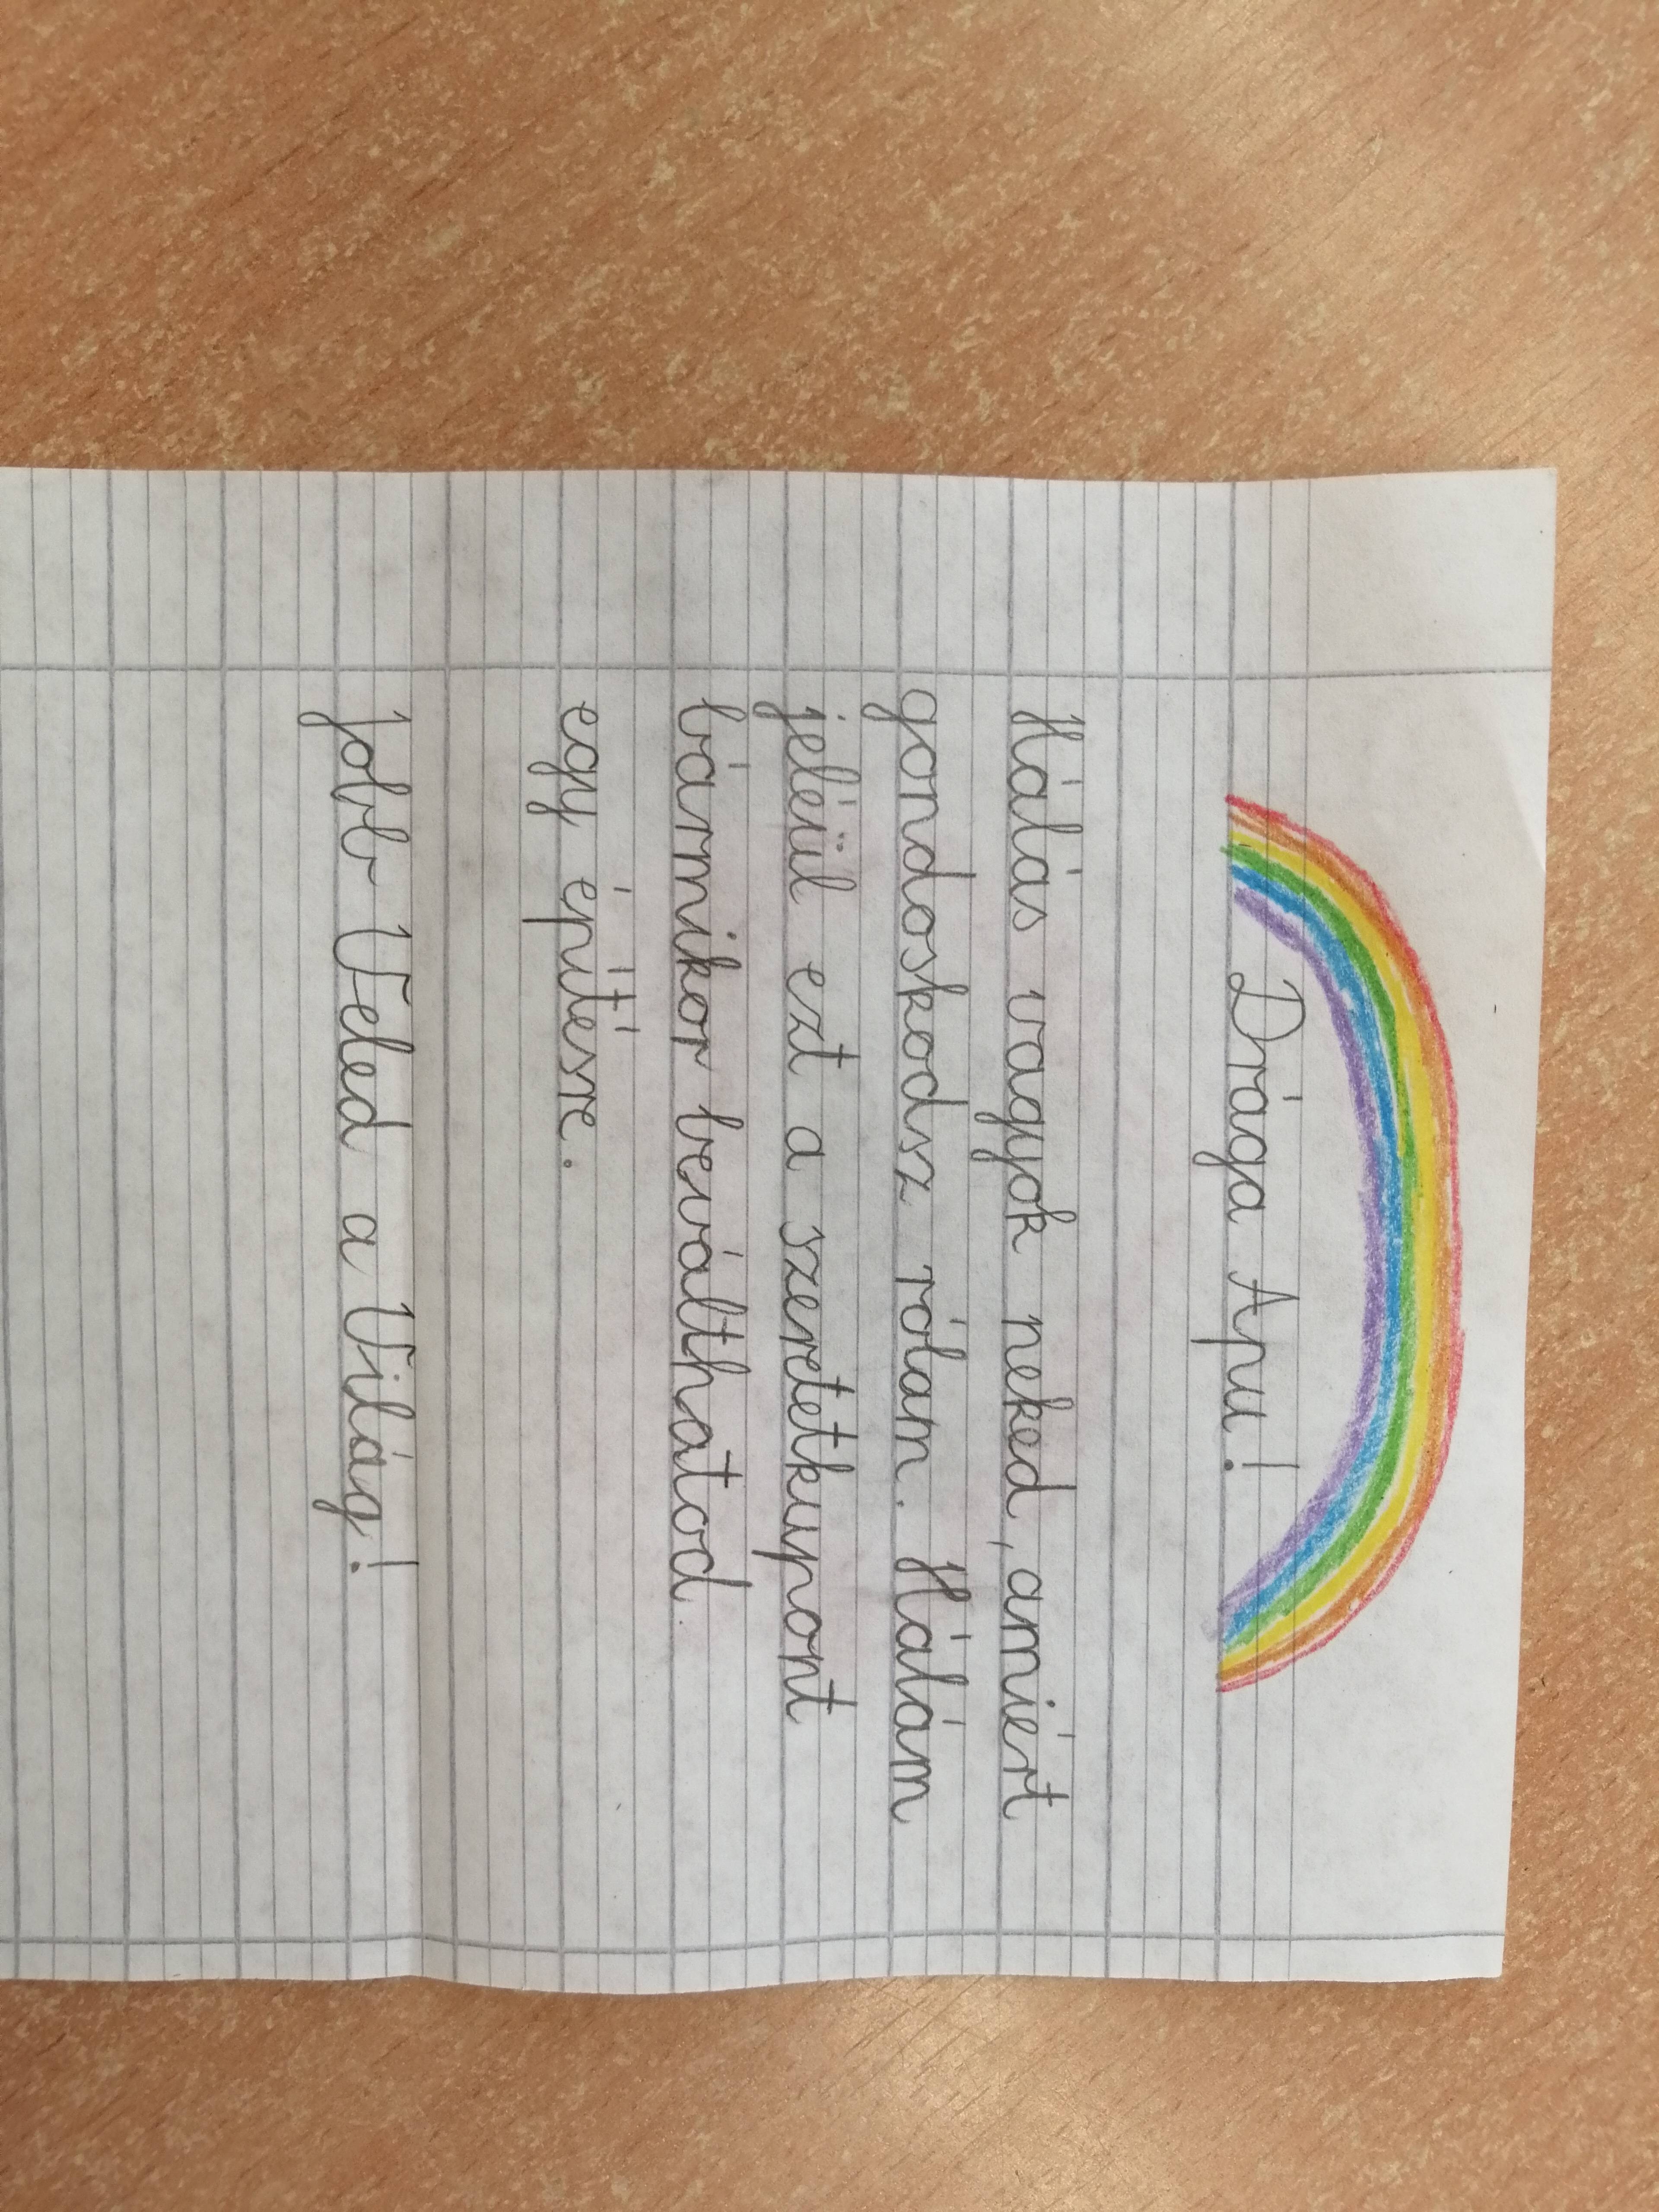 Drága Apu!
Hálás vagyok neked, amiért
gondoskodsz rólam. Hálám
jeléül ezt a szeretetkupont
bármikor beválthatod
egy építésre.
Jobb Veled a Világ!